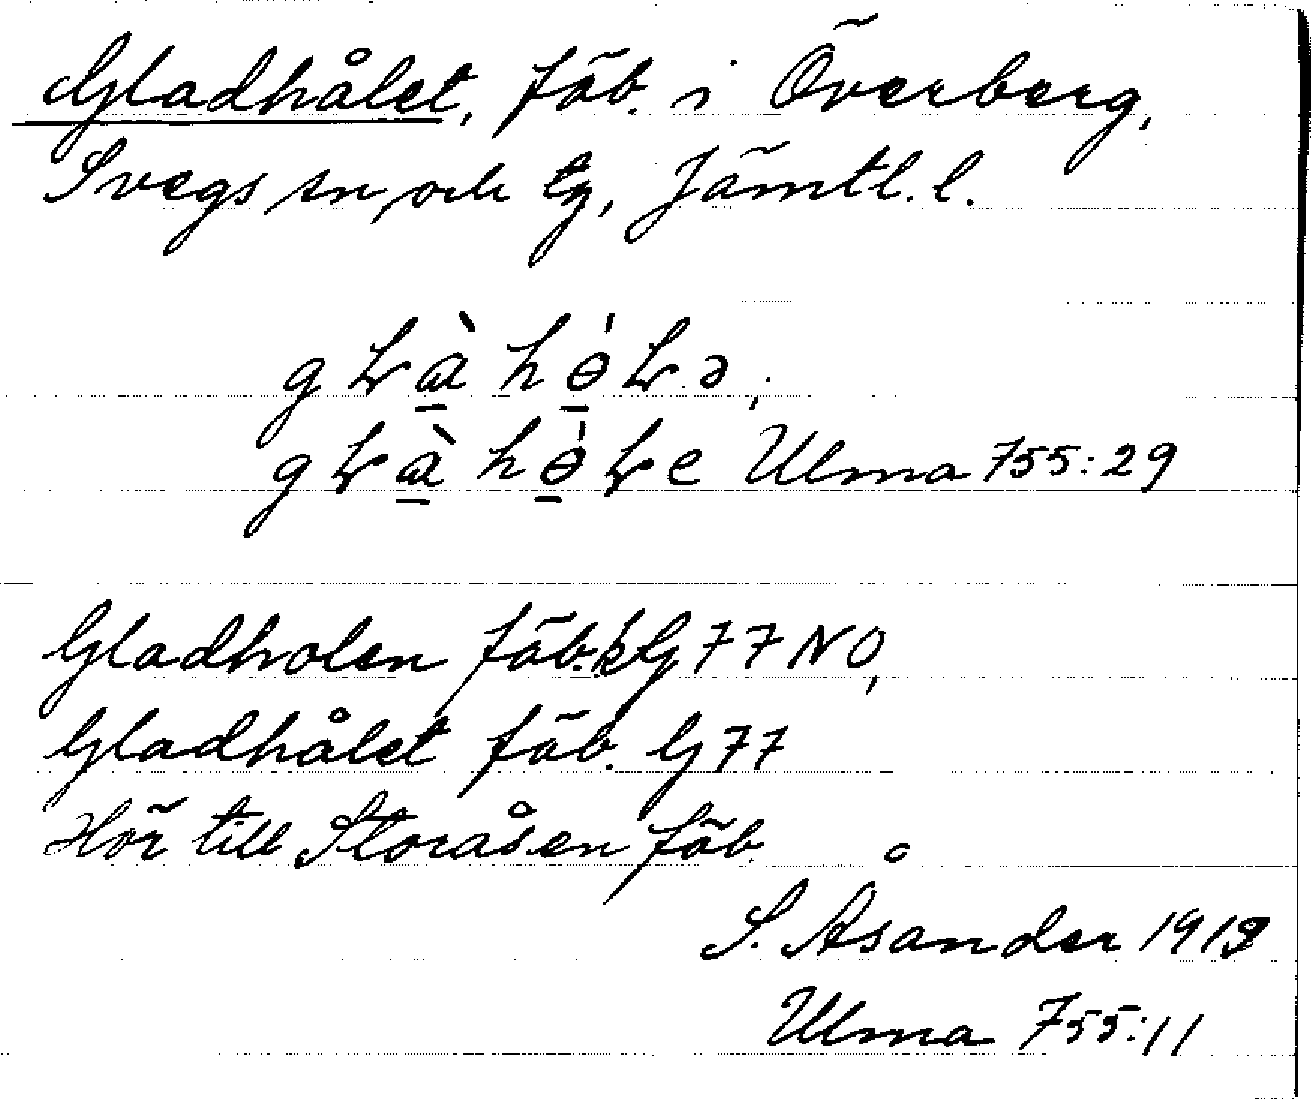 Gladhålet, fäb. i Överberg,
Svegs sn och tg, Jämtl. l.
gɫà̱hɵ̱́ɫə,
gɫà̱hɵ̱́ɫe Ulma 755:29
Gladholen fäb. k G 77 NO,
Gladhålet fäb. G 77
Hör till Storåsen fäb.
S. Åsander 1919
Ulma 755:11